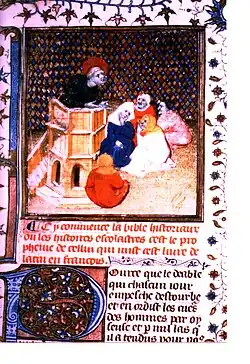 Cy commence la bible historiaux
ou les histoires escolastres cest le pro
pheme de cellui qui mist cest livre de
latin en francois.
Pource que le deable
qui chascun iour
empesche destourbe
et en ordist les cuers
des hommes par oy
seuse et